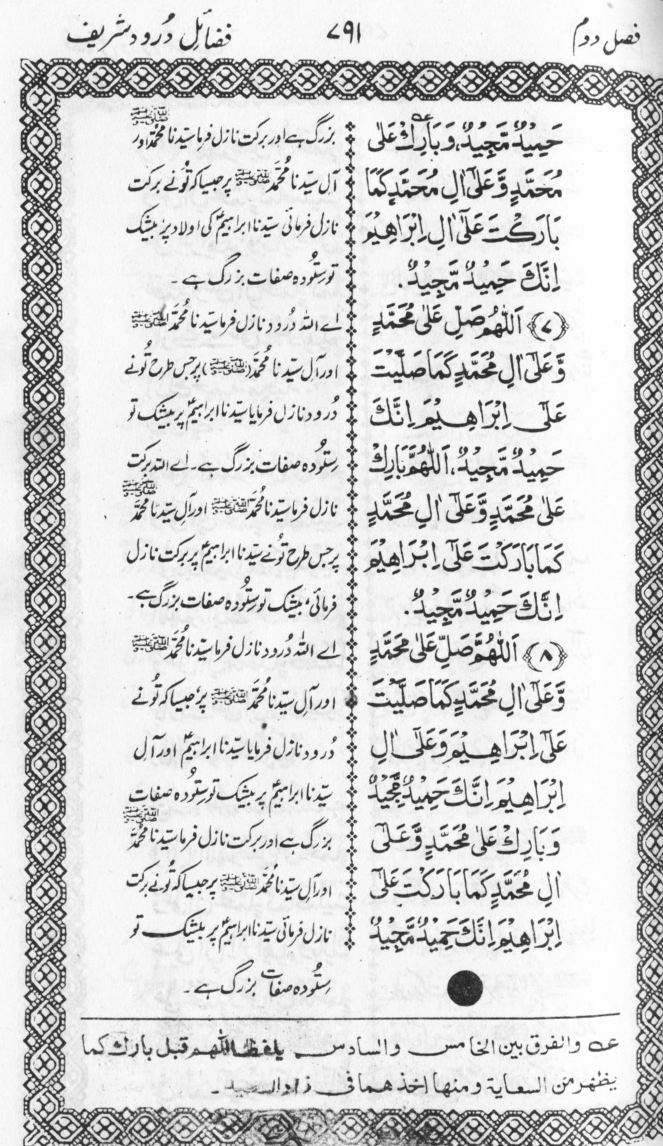 فصل دوم
۷۹۱
فضائل درود شریف
حَمِيْدٌ مَّجِيْدٌ، وَبَارِكْ عَلٰى
مُحَمَّدٍ وَّعَلٰٓى اٰلِ مُحَمَّدٍ كَمَا
بَارَكْتَ عَلٰٓى اٰلِ اِبْرَاهِيْمَ
اِنَّكَ حَمِيْدٌ مَّجِيْدٌ.
﴿۷﴾ اَللّٰهُمَّ صَلِّ عَلٰى مُحَمَّدٍ
وَّعَلٰٓى اٰلِ مُحَمَّدٍ كَمَا صَلَّيْتَ
عَلٰٓى اِبْرَاهِيْمَ اِنَّكَ
حَمِيْدٌ مَّجِيْدٌ، اَللّٰهُمَّ بَارِكْ
عَلٰى مُحَمَّدٍ وَّعَلٰٓى اٰلِ مُحَمَّدٍ
كَمَا بَارَكْتَ عَلٰٓى اِبْرَاهِيْمَ
اِنَّكَ حَمِيْدٌ مَّجِيْدٌ.
﴿۸﴾ اَللّٰهُمَّ صَلِّ عَلٰى مُحَمَّدٍ
وَّعَلٰٓى اٰلِ مُحَمَّدٍ كَمَا صَلَّيْتَ
عَلٰٓى اِبْرَاهِيْمَ وَعَلٰٓى اٰلِ
اِبْرَاهِيْمَ اِنَّكَ حَمِيْدٌ مَّجِيْدٌ
وَبَارِكْ عَلٰى مُحَمَّدٍ وَّعَلٰٓى
اٰلِ مُحَمَّدٍ كَمَا بَارَكْتَ عَلٰٓى
اِبْرَاهِيْمَ اِنَّكَ حَمِيْدٌ مَّجِيْدٌ
بزرگ ہے اور برکت نازل فرما سیّدنا محمدﷺ اور
آل سیّدنا محمدﷺ پر جیسا کہ تُونے برکت
نازل فرمائی سیّدنا ابراہیمؑ کی اولاد پر، بیشک
تو ستُودہ صفات بزرگ ہے۔
اے اللہ دُرود نازل فرما سیّدنا محمدﷺ
اور آل سیّدنا محمد(ﷺ) پر جس طرح تُونے
دُرود نازل فرمایا سیّدنا ابراہیمؑ پر بیشک تو
ستُودہ صفات بزرگ ہے۔ اے اللہ برکت
نازل فرما سیّدنا محمدﷺ اور آلِ سیّدنا محمدﷺ
پر جس طرح تُونے سیّدنا ابراہیمؑ پر برکت نازل
فرمائی، بیشک تو ستُودہ صفات بزرگ ہے۔
اے اللہ دُرود نازل فرما سیّدنا محمدﷺ
اور آلِ سیّدنا محمدﷺ پر، جیسا کہ تُونے
دُرود نازل فرمایا سیّدنا ابراہیمؑ اور آل
سیّدنا ابراہیمؑ پر بیشک تو ستُودہ صفات
بزرگ ہے اور برکت نازل فرما سیّدنا محمدﷺ
اور آل سیّدنا محمدﷺ پر جیسا کہ تُونے برکت
نازل فرمائی سیّدنا ابراہیمؑ پر بیشک تو
ستُودہ صفات بزرگ ہے۔
عہ والفرق بین الخامس والسادس بلفظ اللهم قبل بارك كما
يظهر من السعاية ومنها اخذهما فى زاد السعيد۔